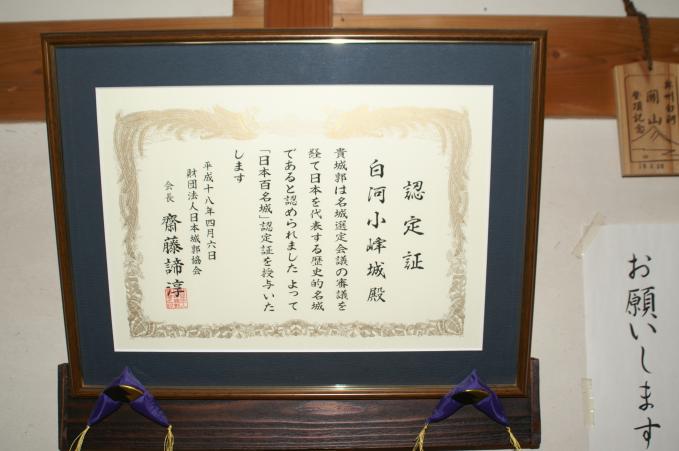 認定証
白河小峰城殿
貴城郭は名城選定会議の審議を
経て日本を代表する歴史的名城
であると認められました よって
「日本百名城」認定証を授与いた
します
平成十八年四月六日
財団法人日本城郭協会
会長 齋藤諦淳
奥州白河
関山
登頂記念
お願いします